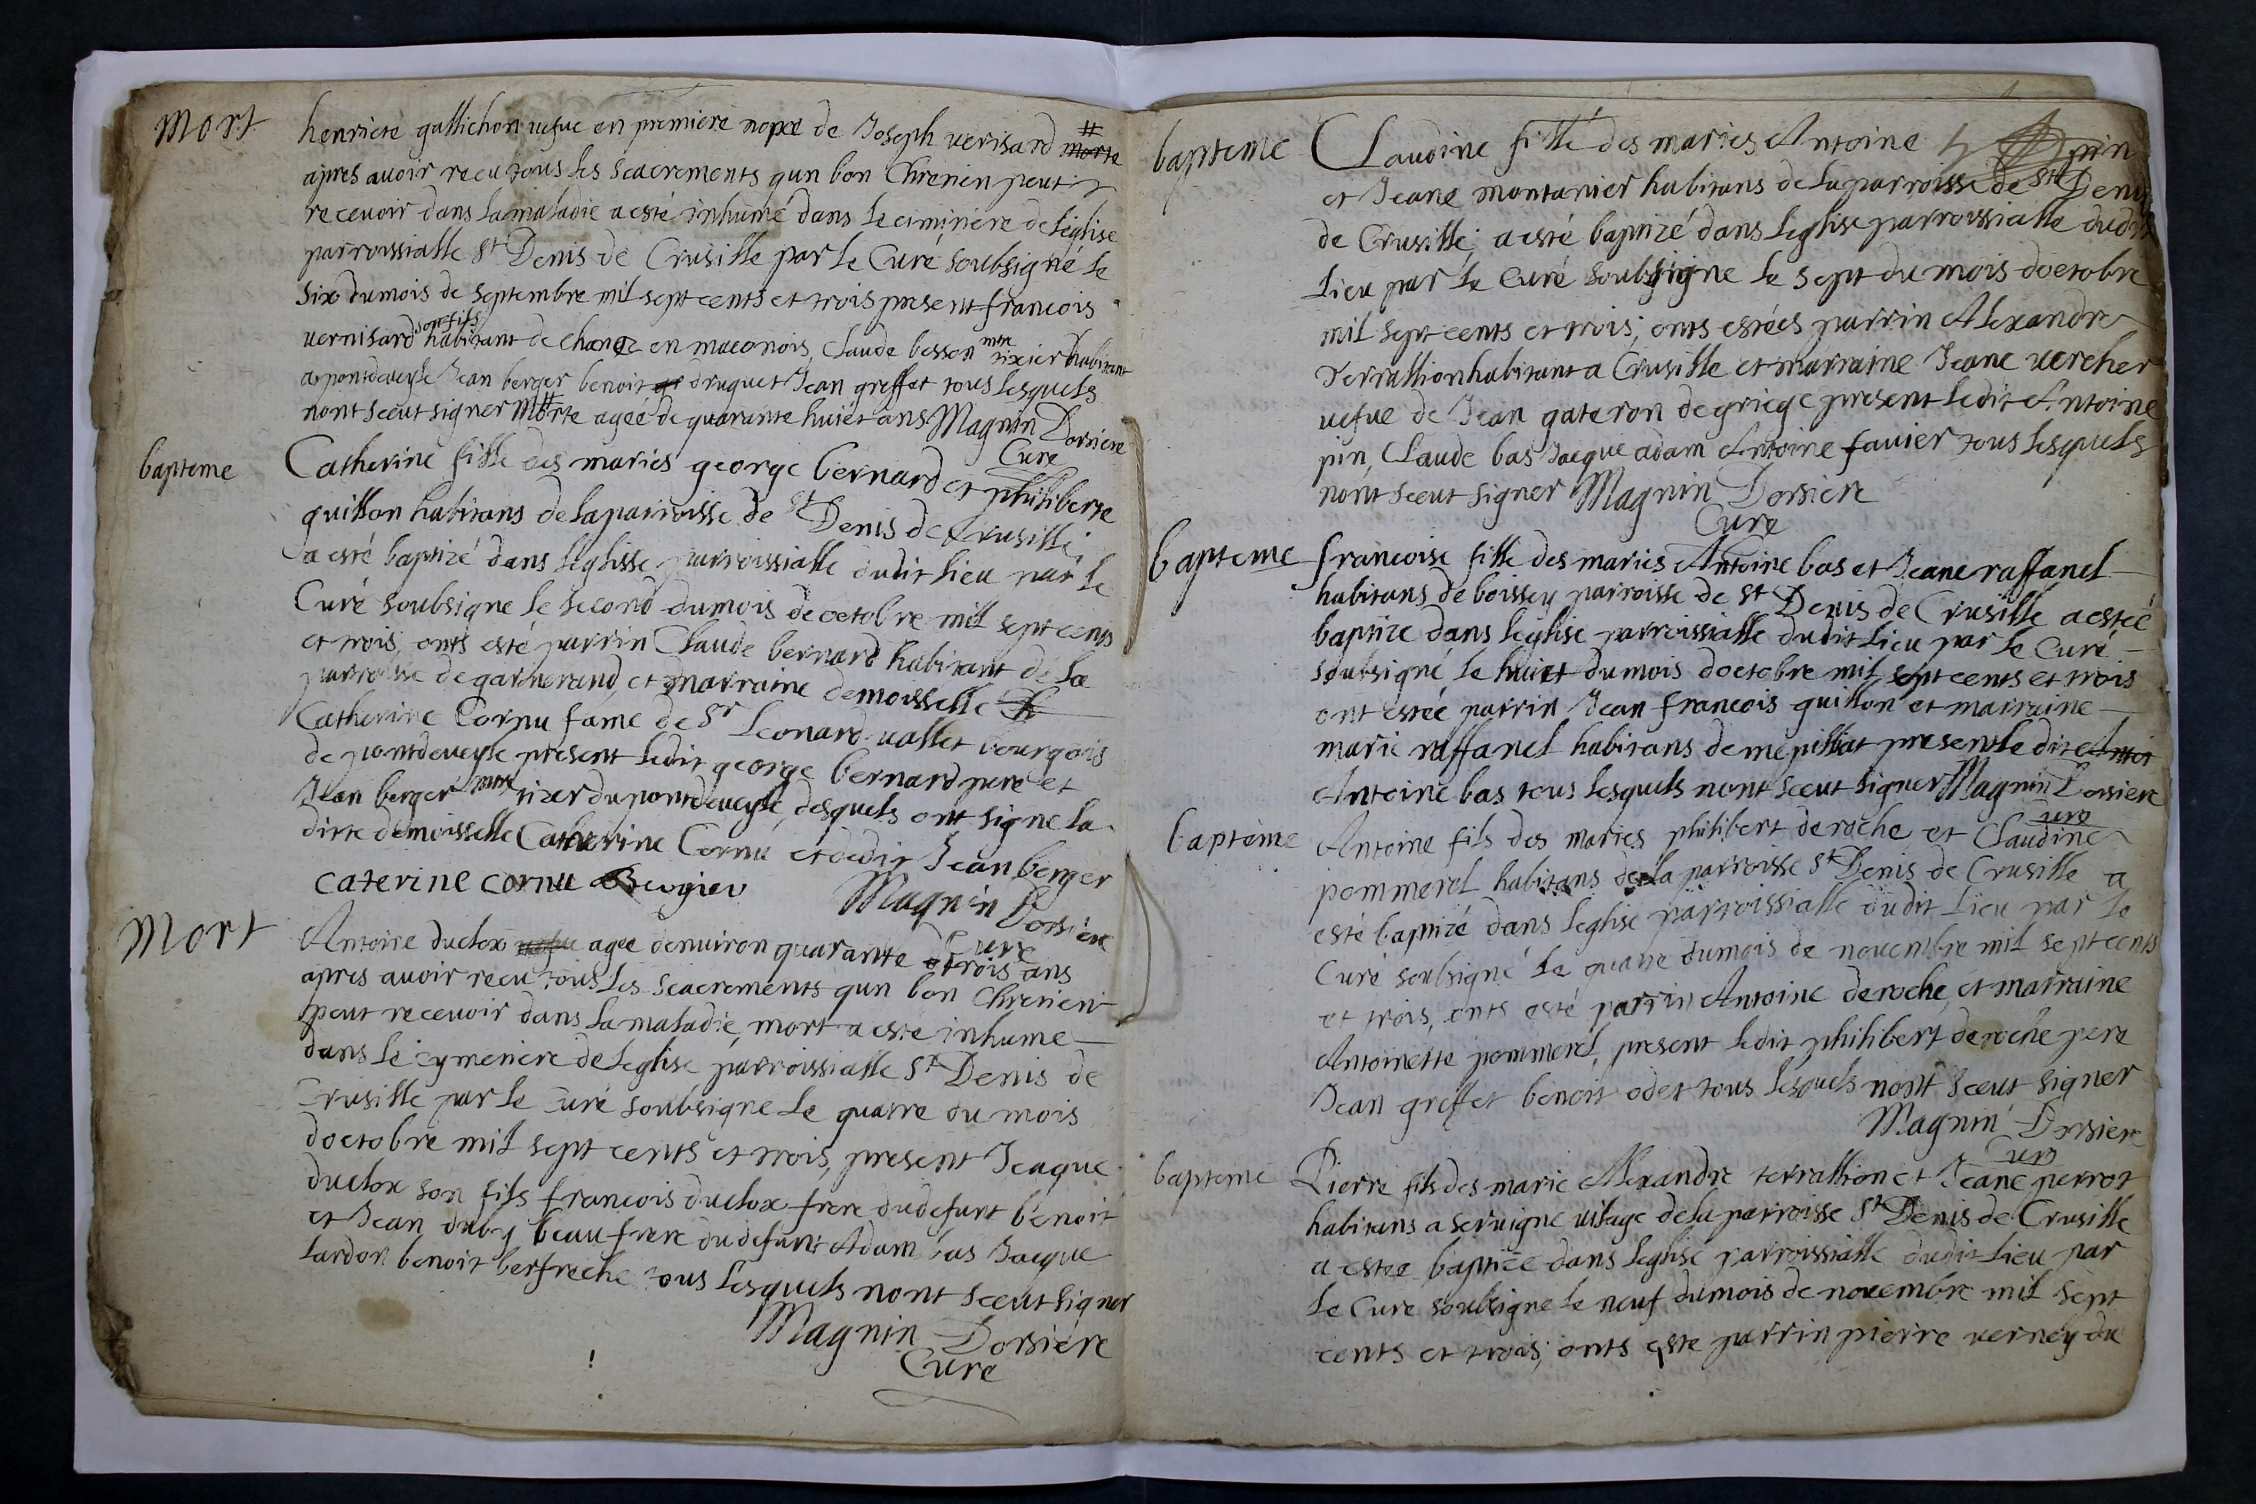 Mort
henriete gallichon vefue en premiere nopce de Joseph verisard # morte
apres auoir receu tous les sacrements qun bon Chretien peut
receuoir dans la maladie a esté inhumé dans le cimitiere de leglise
parroissialle St Denis de Crusille par le Curé soubsigné le
six du mois de septembre mil sept cents et trois present francois
vernisard son fils habitant de chane en maconois, Claude besson mtre tixier habitant
a pontdeueyle Jean berger benoit druguet Jean greffet tous lesquels
nont sceut signer # Morte ageé de quarante huict ans Magnin Dorsiere
Curé
bapteme
Catherine fille des mariés george bernard et philiberte
guillon habitans de la parroisse de St Denis de Crusille;
a esté baptizé dans leglisse parroissialle dudit lieu par le
Curé soubsigne le second du mois de octobre mil sept cents
et trois, onts esté parrin Claude bernard habitant de la
parroisse de garnerand, et marraine demoisselle
Catherine Cornu fame de Sr Leonard vallet bourgois
de pontdeueyle present ledit george bernard pere et
Jean berger mtre tixier du pontdeueyle, desquels ont signe la
ditte demoisselle Catherine Cornu et ledit Jean berger
caterine cornu Bergier
Magnin Dorsiere
Cure
Mort
Antoine duclox agee denuiron quarante et trois ans
apres auoir receu tous les sacrements qun bon Chretien
peut receuoir dans la maladie, mort a esté inhume
dans le cymeniere de leglise parroissialle St Denis de
Crusille par le curé soubsigne le quatre du mois
doctobre mil sept cents et trois, present Jeaque
duclox son fils francois duclox frere dudefunt benoit
et Jean duby beaufrere dudefunt Adam bas Jacque
lardon benoit berfreche tous lesquels nont sceut signer
Magnin Dorsiere
Cure
bapteme
Claudine fille des maries Antoine pin
et Jeane montanier habitans de la parroisse de St Denis
de Crusille; a esté baptizé dans leglise parroissialle dudit
lieu par le Curé soubsigne le sept du mois doctobre
mil sept cents et trois; onts estées parrin Alexandre
Terrallion habitant a Crusille et marraine Jeane vercher
uefue de Jean gateron de griege present ledit Antoine
pin, Claude bas Jacque adam Antoine fauier tous lesquels
nont sceut signer Magnin Dorsiere
Cure
bapteme
francoise fille des maries Antoine bas et Jeane raffanel
habitans de boissey parroisse de St Denis de Crusille a esteé
baptize dans leglise parroissialle dudit lieu par le Curé
soubsigné le huict du mois doctobre mil sept cents et trois
ont esteé parrin Jean francois guillon et marraine
marie raffanel habitans de mepilliat present le dit
Antoine bas tous lesquels nont sceut signer Magnin Dorsiere
Curé
baptême
Antoine fils des maries philibert deroche et Claudine
pommerel habitans de la parroisse St Denis de Crusille a
esté baptizé dans leglise parroissialle dudit lieu par le
Curé soubsigné le quatre du mois de nouembre mil sept cents
et trois, onts esté parrin Antoine deroche, et marraine
Antoinette pommerel, present ledit philibert deroche pere
Jean greffet benoit odet tous lesquels nont sceut signer
Magnin Dorsiere
Curé
bapteme
Pierre fils des marie Alexandre terrallion et Jeane perrot
habitans a seruigne uilage de la parroisse St Denis de Crusille
a estee baptize dans leglise parroissialle dudit lieu par
le Cure soubsigne le neuf du mois de nouembre mil sept
cents et trois; onts este parrin pierre verney du